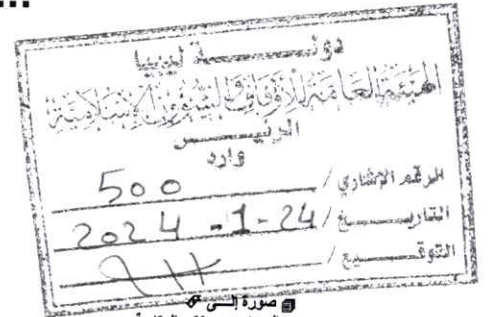 ...
دولــــــة ليبيا
الهيئة العامة للأوقاف والشؤون الإسلامية
الرئيــــــس
وارد
الرقم الإشاري / 500
التاريــــــخ / 24-1-2024
التوقــــــيع /
صورة إلــى